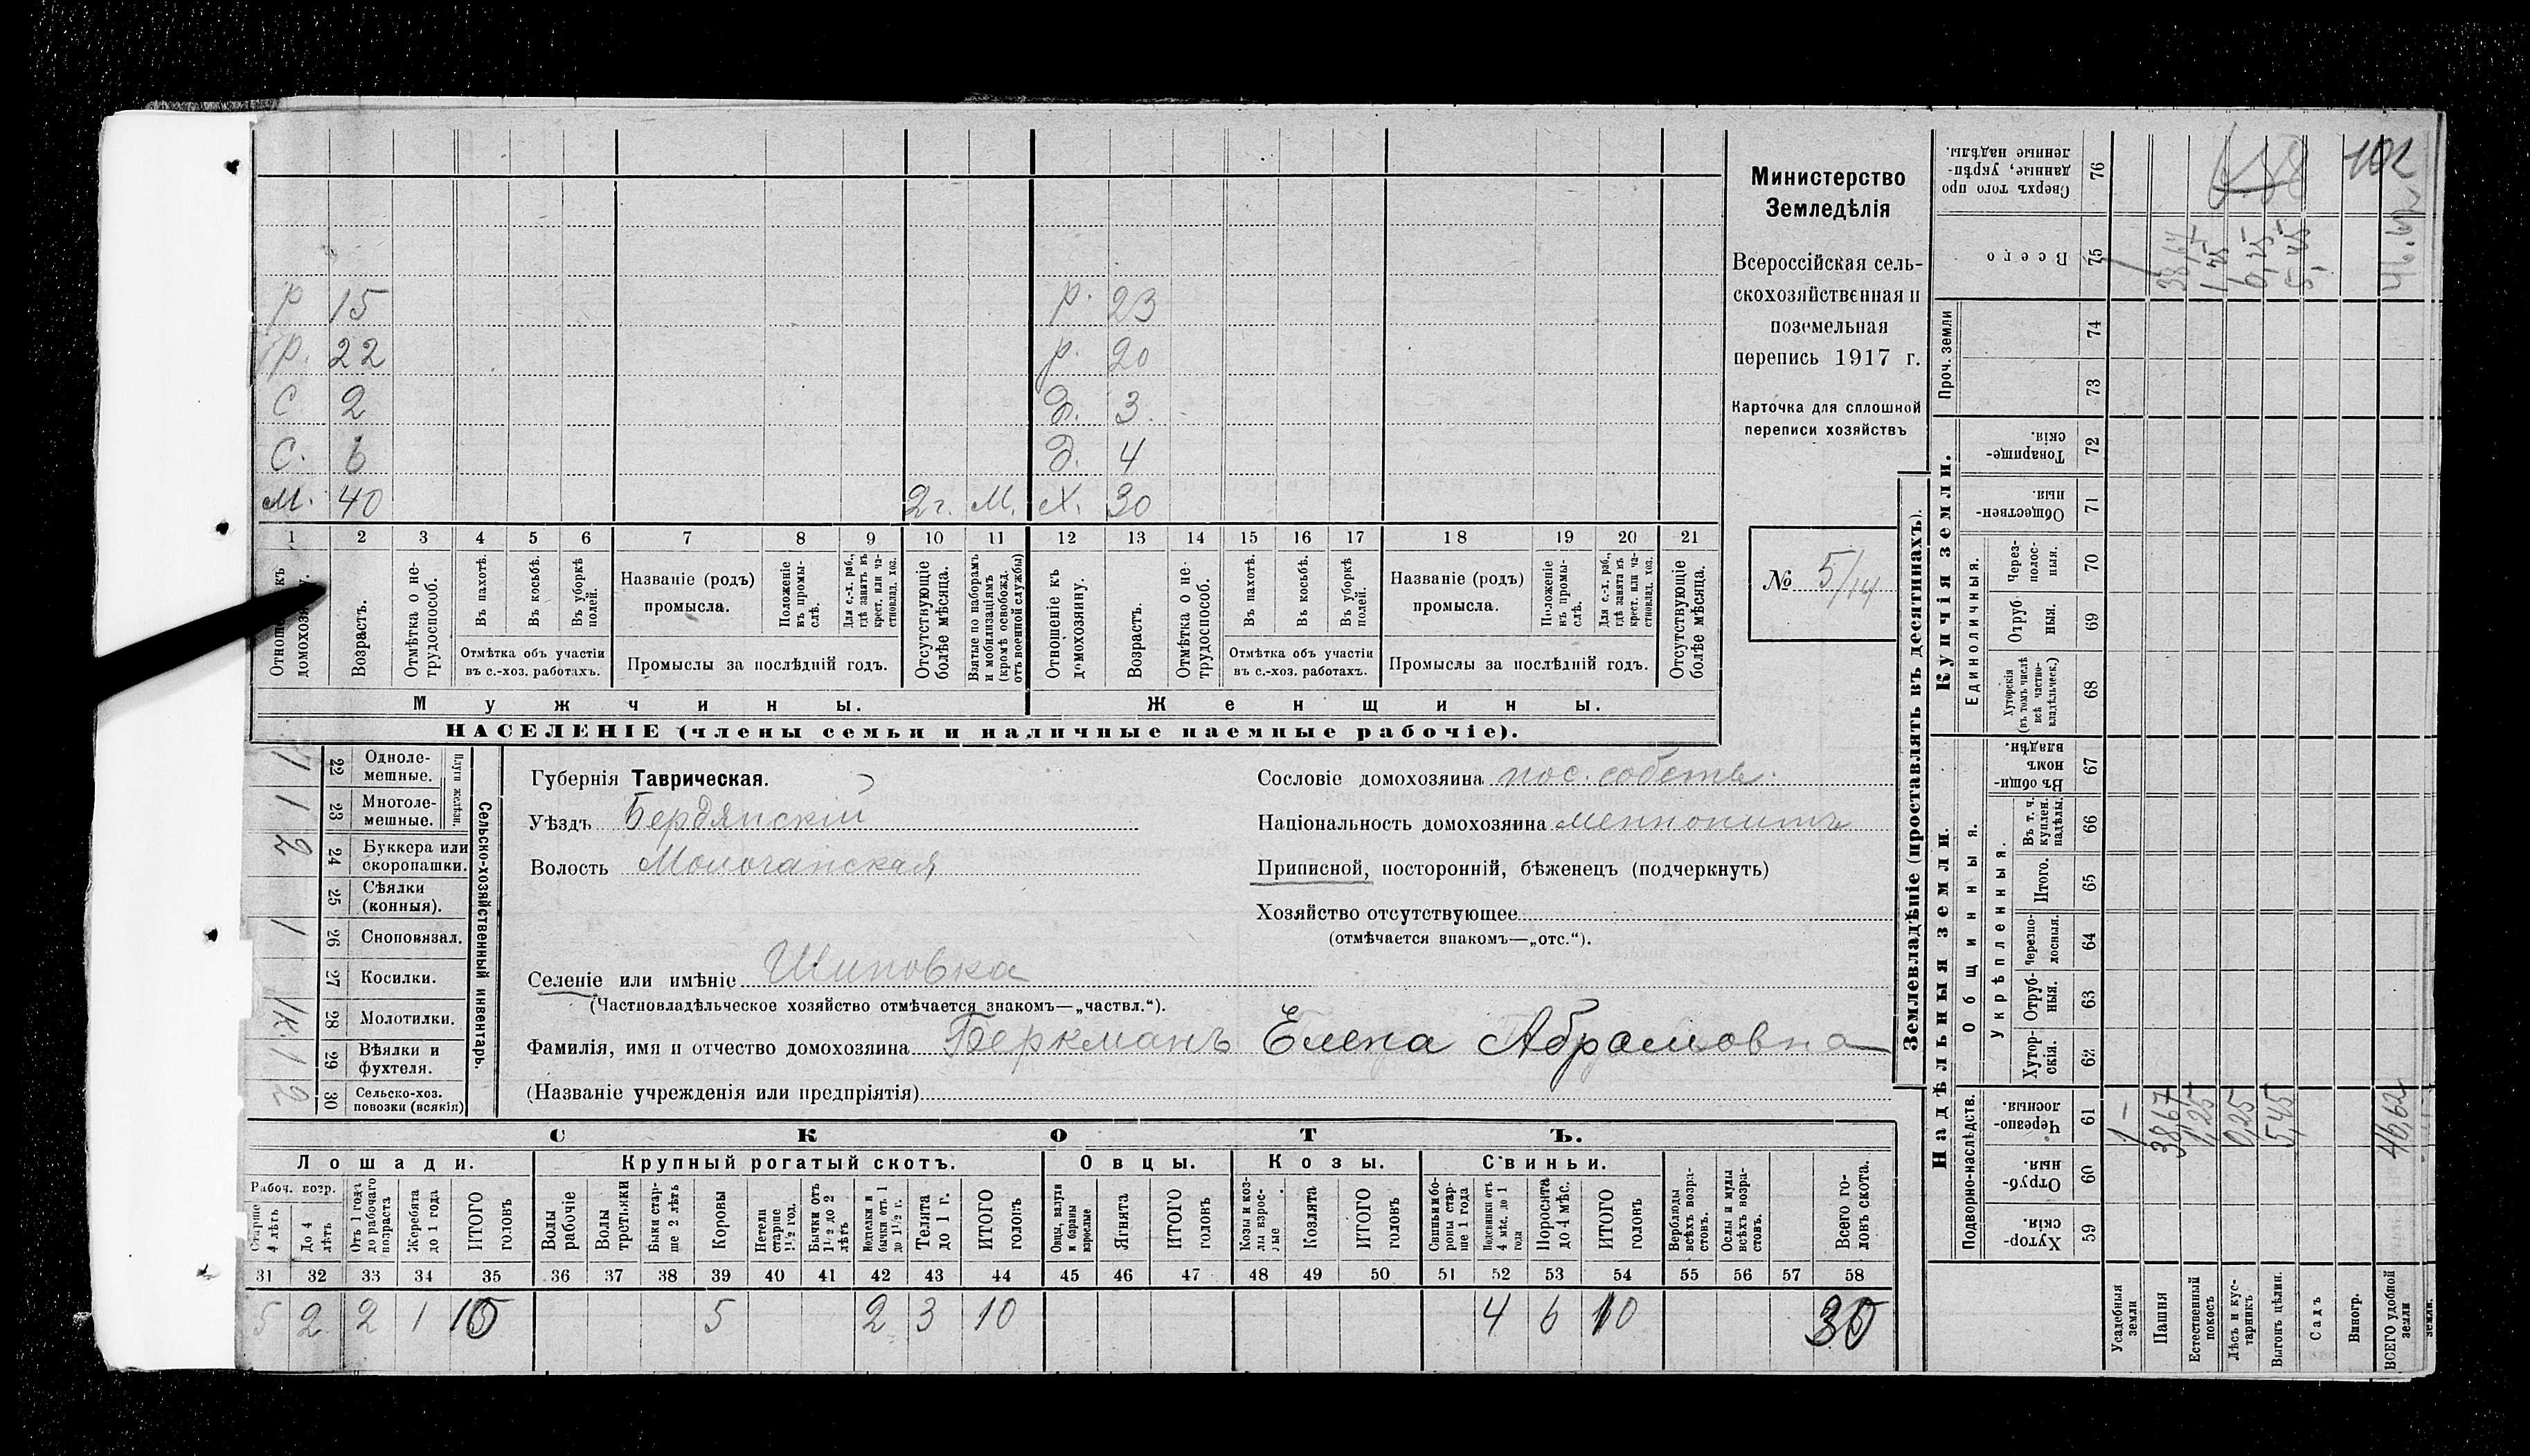 Министерство
Земледѣлія
Всероссійская сель-
скохозяйственная и
поземельная
перепись 1917 г.
Карточка для сплошной
переписи хозяйствъ
№ 5/14
Р 15 р. 23
Р. 22 р. 20
С 2 д. 3
С. 6 д. 4
М. 40 2 г. М. Х. 30
1 2 3 4 5 6 7 8 9 10 11 12 13 14 15 16 17 18 19 20 21
Отношеніе къ домохозяину.
Возрастъ.
Отмѣтка о не-трудоспособ.
Въ пахотѣ.
Въ косьбѣ.
Въ уборкѣ полей.
Отмѣтка объ участіи
въ с.-хоз. работахъ.
Названіе (родъ)
промысла.
Положеніе въ промы-слѣ.
Для с.-х. раб., гдѣ занятъ въ крест. или ча-стновлад. хоз.
Промыслы за послѣдній годъ.
Отсутствующіе болѣе мѣсяца.
Взятые по наборамъ и мобилизаціямъ (кромѣ освобожд. отъ военной службы)
Отношеніе къ домохозяину.
Возрастъ.
Отмѣтка о не-трудоспособ.
Въ пахотѣ.
Въ косьбѣ.
Въ уборкѣ полей.
Отмѣтка объ участіи
въ с.-хоз. работахъ.
Названіе (родъ)
промысла.
Положеніе въ промы-слѣ.
Для с.-х. раб., гдѣ занята въ крест. или ча-стновлад. хоз.
Промыслы за послѣдній годъ.
Отсутствующіе болѣе мѣсяца.
Мужчины. Женщины.
НАСЕЛЕНІЕ (члены семьи и наличные наемные рабочіе).
Сельско-хозяйственный инвентарь.
Плуги желѣзн.
22 Одноле-мешные. 1
23 Многоле-мешные. 1
24 Буккера или скоропашки. 2
25 Сѣялки (конныя).
26 Сноповязал. 1
27 Косилки.
28 Молотилки. 1к.
29 Вѣялки и фухтеля. 1
30 Сельско-хоз. повозки (всякія) 2
Губернія Таврическая.
Уѣздъ Бердянскій
Волость Молочанская
Селеніе или имѣніе Шиповка
(Частновладѣльческое хозяйство отмѣчается знакомъ—„частвл.“).
Фамилія, имя и отчество домохозяина Беркманъ Елена Абрамовна
(Названіе учрежденія или предпріятія)
Сословіе домохозяина пос. собств.
Національность домохозяина меннонитъ
Приписной, посторонній, бѣженецъ (подчеркнуть)
Хозяйство отсутствующее
(отмѣчается знакомъ—„отс.“).
СКОТЪ.
Лошади. Крупный рогатый скотъ. Овцы. Козы. Свиньи.
Рабоч. возр.
Старше 4 лѣтъ
До 4 лѣтъ
Отъ 1 года до рабочаго возраста
Жеребята до 1 года
ИТОГО головъ
Волы рабочіе
Волы третьяки
Быки стар-ше 2 лѣтъ
Коровы
Нетели старше 1½ год.
Бычки отъ 1½ до 2 лѣтъ
Телки и бычки отъ 1 до 1½ г.
Телята до 1 г.
ИТОГО головъ
Овцы, валухи и бараны взрослые
Ягнята
ИТОГО головъ
Козы и коз-лы взрос-лые
Козлята
ИТОГО головъ
Свиньи и бо-ровы стар-ше 1 года
Подсвинки отъ 4 мѣс. до 1 года
Поросята до 4 мѣс.
ИТОГО головъ
Верблюды всѣхъ возра-стовъ.
Ослы и мулы всѣхъ возра-стовъ.
Всего го-ловъ скота.
31 32 33 34 35 36 37 38 39 40 41 42 43 44 45 46 47 48 49 50 51 52 53 54 55 56 57 58
5 2 2 1 10 5 2 3 10 4 6 10 30
Землевладѣніе (проставлять въ десятинахъ).
Надѣльныя земли. Купчія земли.
Подворно-наслѣдств.
Общинныя.
Укрѣпленныя.
Единоличныя.
Проч. земли
Хутор-скія. 59
Отруб-ныя. 60
Черезпо-лосныя. 61
Хутор-скія. 62
Отруб-ныя. 63
Черезпо-лосныя. 64
Итого. 65
Въ т. ч. куплен. надѣлы. 66
Въ общи-номъ владѣн. 67
Хуторскія (въ томъ числѣ всѣ частно-владѣльческ.) 68
Отруб-ныя. 69
Через-полос-ныя. 70
Обществен-ныя. 71
Товарище-скія. 72
73
74
Всего 75
Сверхъ того про данные, укрѣп-ленные надѣлы. 76
Усадебныя земли 1 –
Пашня 38,67
Естественный покосъ 1,25
Лѣсъ и кус-тарникъ 0,25
Выгонъ цѣлин. 5,45
Садъ
Виногр.
ВСЕГО удобной земли 46,62
земли.
102